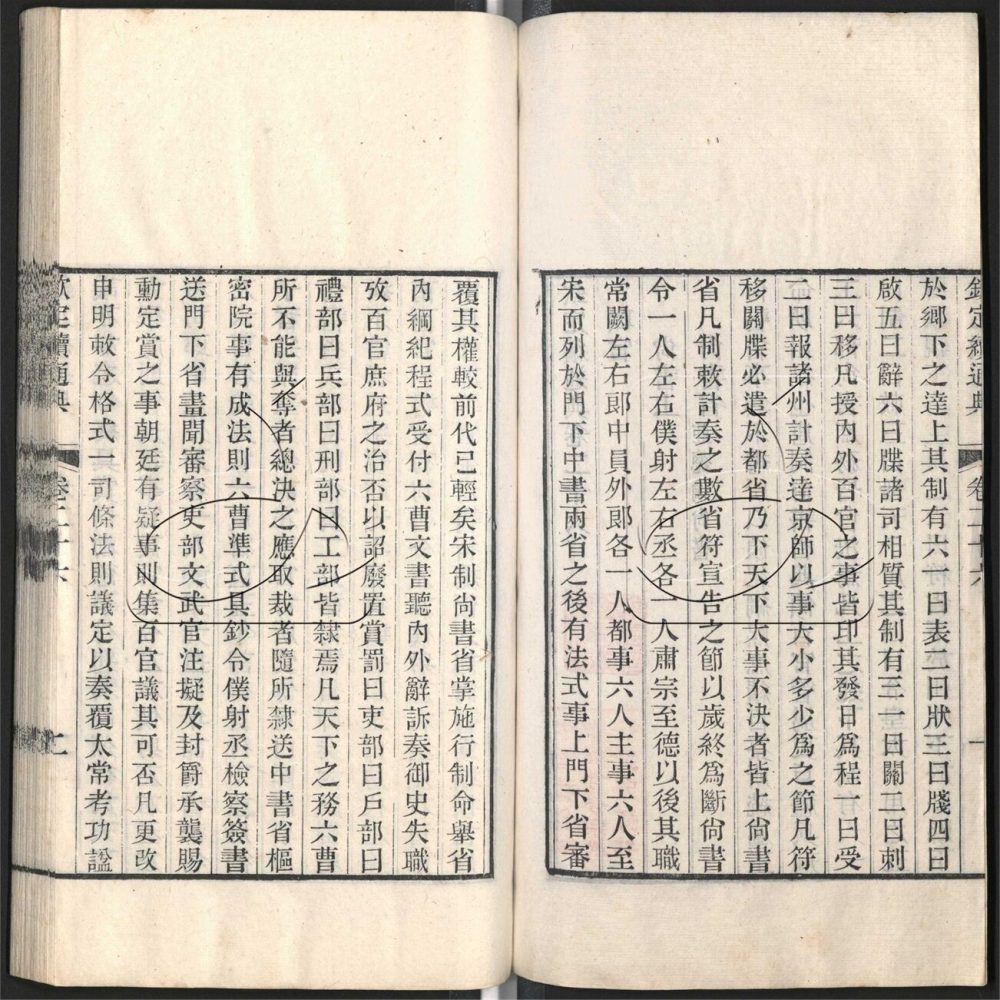 欽定續通典 卷二十六 一
於鄉下之達上其制有六一曰表二曰狀三曰牋四曰
啟五曰辭六曰牒諸司相質其制有三一曰關二曰刺
三曰移凡授內外百官之事皆印其發日為程一曰受
二曰報諸州計奏達京師以事大小多少為之節凡符
移關牒必遣於都省乃下天下大事不決者皆上尙書
省凡制敕計奏之數省符宣告之節以歲終為斷尙書
令一人左右僕射左右丞各一人肅宗至德以後其職
常闕左右郞中員外郞各一人都事六人主事六人至
宋而列於門下中書兩省之後有法式事上門下省審
覆其權較前代已輕矣宋制尙書省掌施行制命舉省
內綱紀程式受付六曹文書聽內外辭訴奏御史失職
攷百官庶府之治否以詔廢置賞罰曰吏部曰戶部曰
禮部曰兵部曰刑部曰工部皆隸焉凡天下之務六曹
所不能與奪者總決之應取裁者隨所隸送中書省樞
密院事有成法則六曹準式具鈔令僕射丞檢察簽書
送門下省畫聞審察吏部文武官注擬及封爵承襲賜
勳定賞之事朝廷有疑事則集百官議其可否凡更改
申明敕令格式一司條法則議定以奏覆太常考功諡
欽定續通典 卷二十六